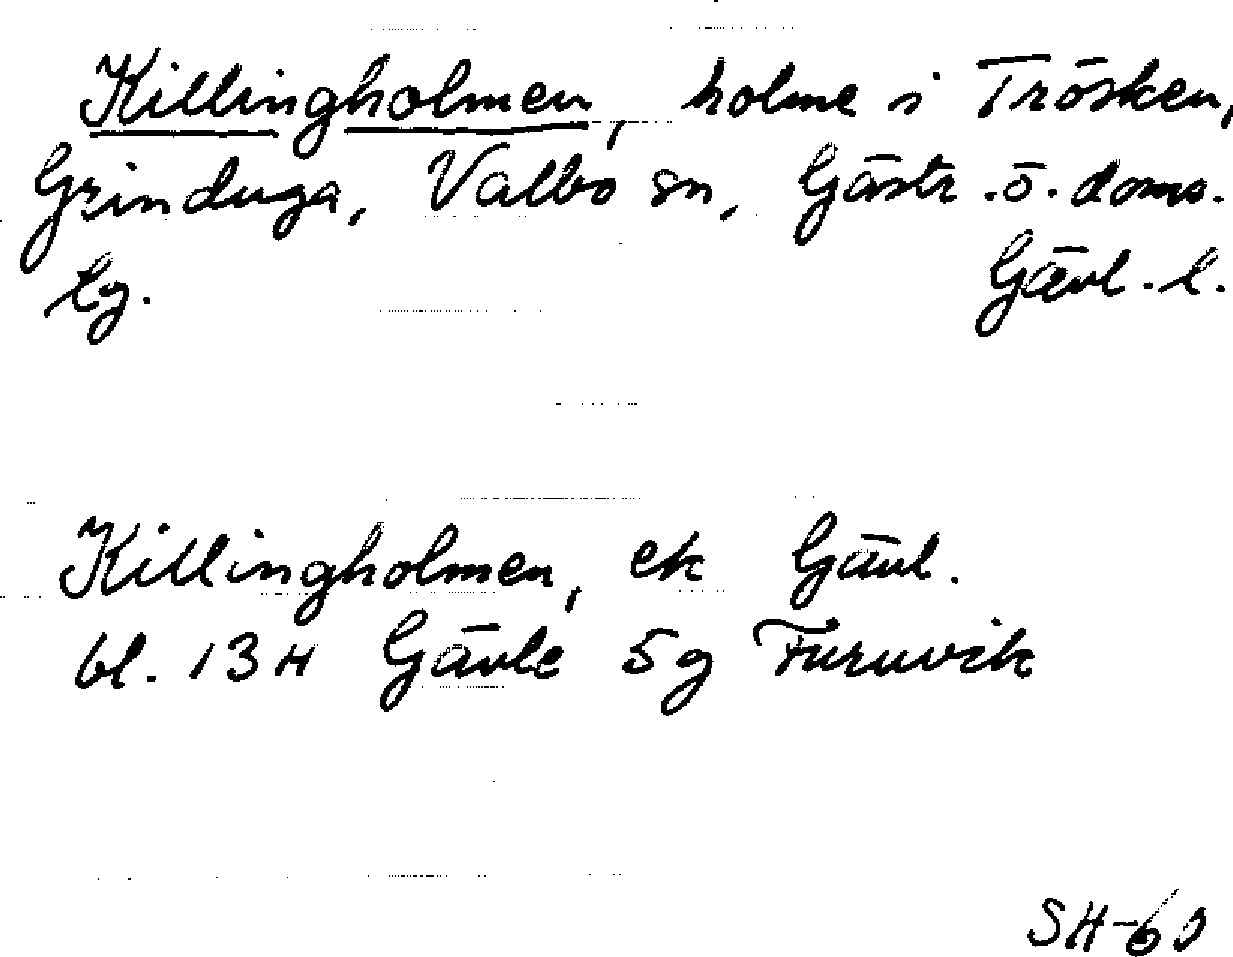 Killingholmen, holme i Trösken,
Grinduga, Valbo sn, Gästr.ö.doms.
lg. Gävl.l.
Killingholmen, ek Gävl.
bl. 13H Gävle 5g Furuvik
SH-60